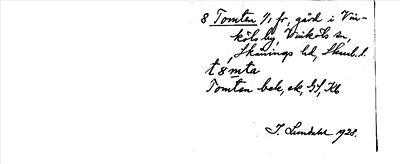 8 Tomten 1/1 fr, gård i Vin-
köls by, Vinköls sn,
Skånings hd, Skarab. l.
t 8 mta
Tomten bek, ek, GS, Kb
J. Lundahl 1928.